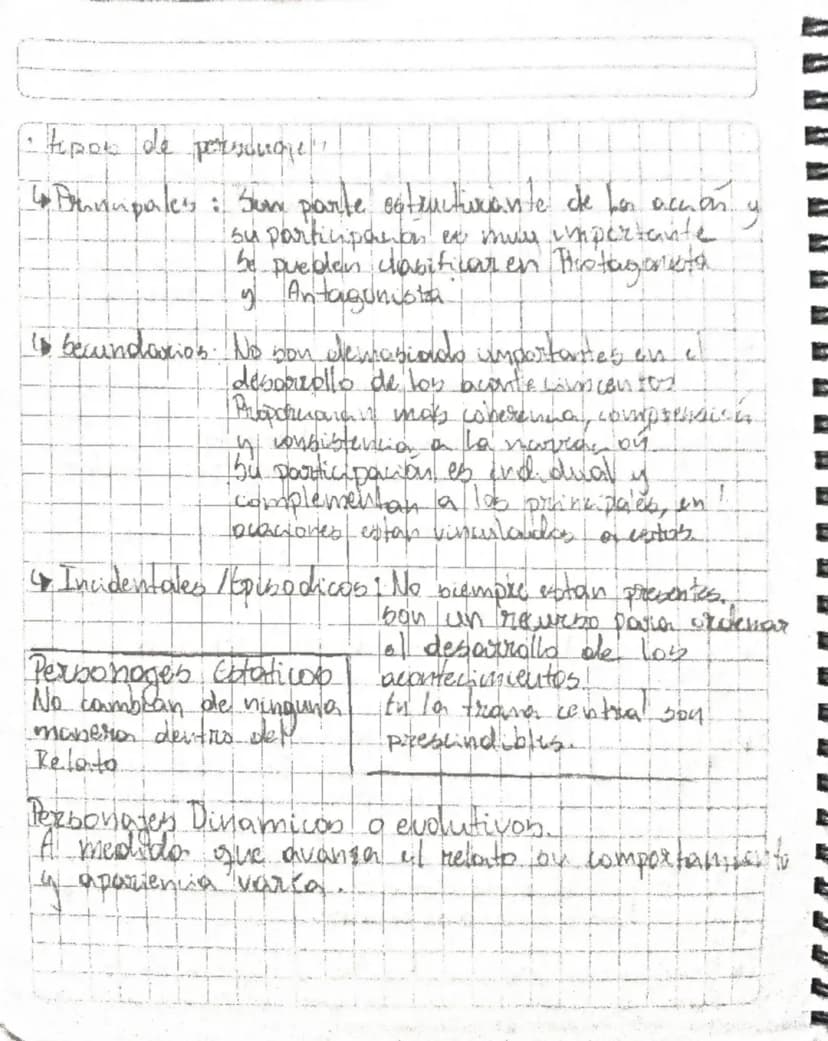 · tipos de personaje"
↳ Principales: Son parte estructurante de la acción y
su participación es muy importante
Se pueden clasificar en Protagonista
y Antagonista
↳ Secundarios: No son demasiado importantes en el
desarrollo de los acontecimientos
Proporcionan más coherencia, comprensión
y consistencia a la narración
Su participación es individual y
complementan a los principales, en
ocaciones estan vinculados a estos.
↳ Incidentales /Episodicos: No siempre estan presentes.
son un recurso para ordenar
el desarrollo de los
acontecimientos.
En la trama central son
prescindibles.
Personages Estaticos
No cambian de ninguna
manera dentro del
Relato
Personajes Dinamicos o evolutivos.
A medida que avanza el relato su comportamiento
y apariencia varía.